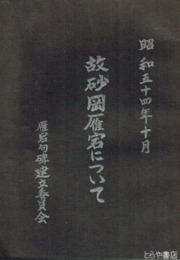 昭和五十四年十月
故砂岡雁宕について
雁宕句碑建立委員会
とらや書店